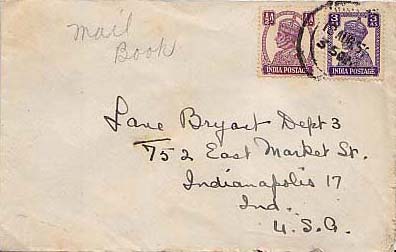 Mail
Book
½A
3 AS
INDIA POSTAGE
INDIA POSTAGE
Lane Bryant Dept 3
752 East Market St.
Indianapolis 17
Ind.
U.S.A.